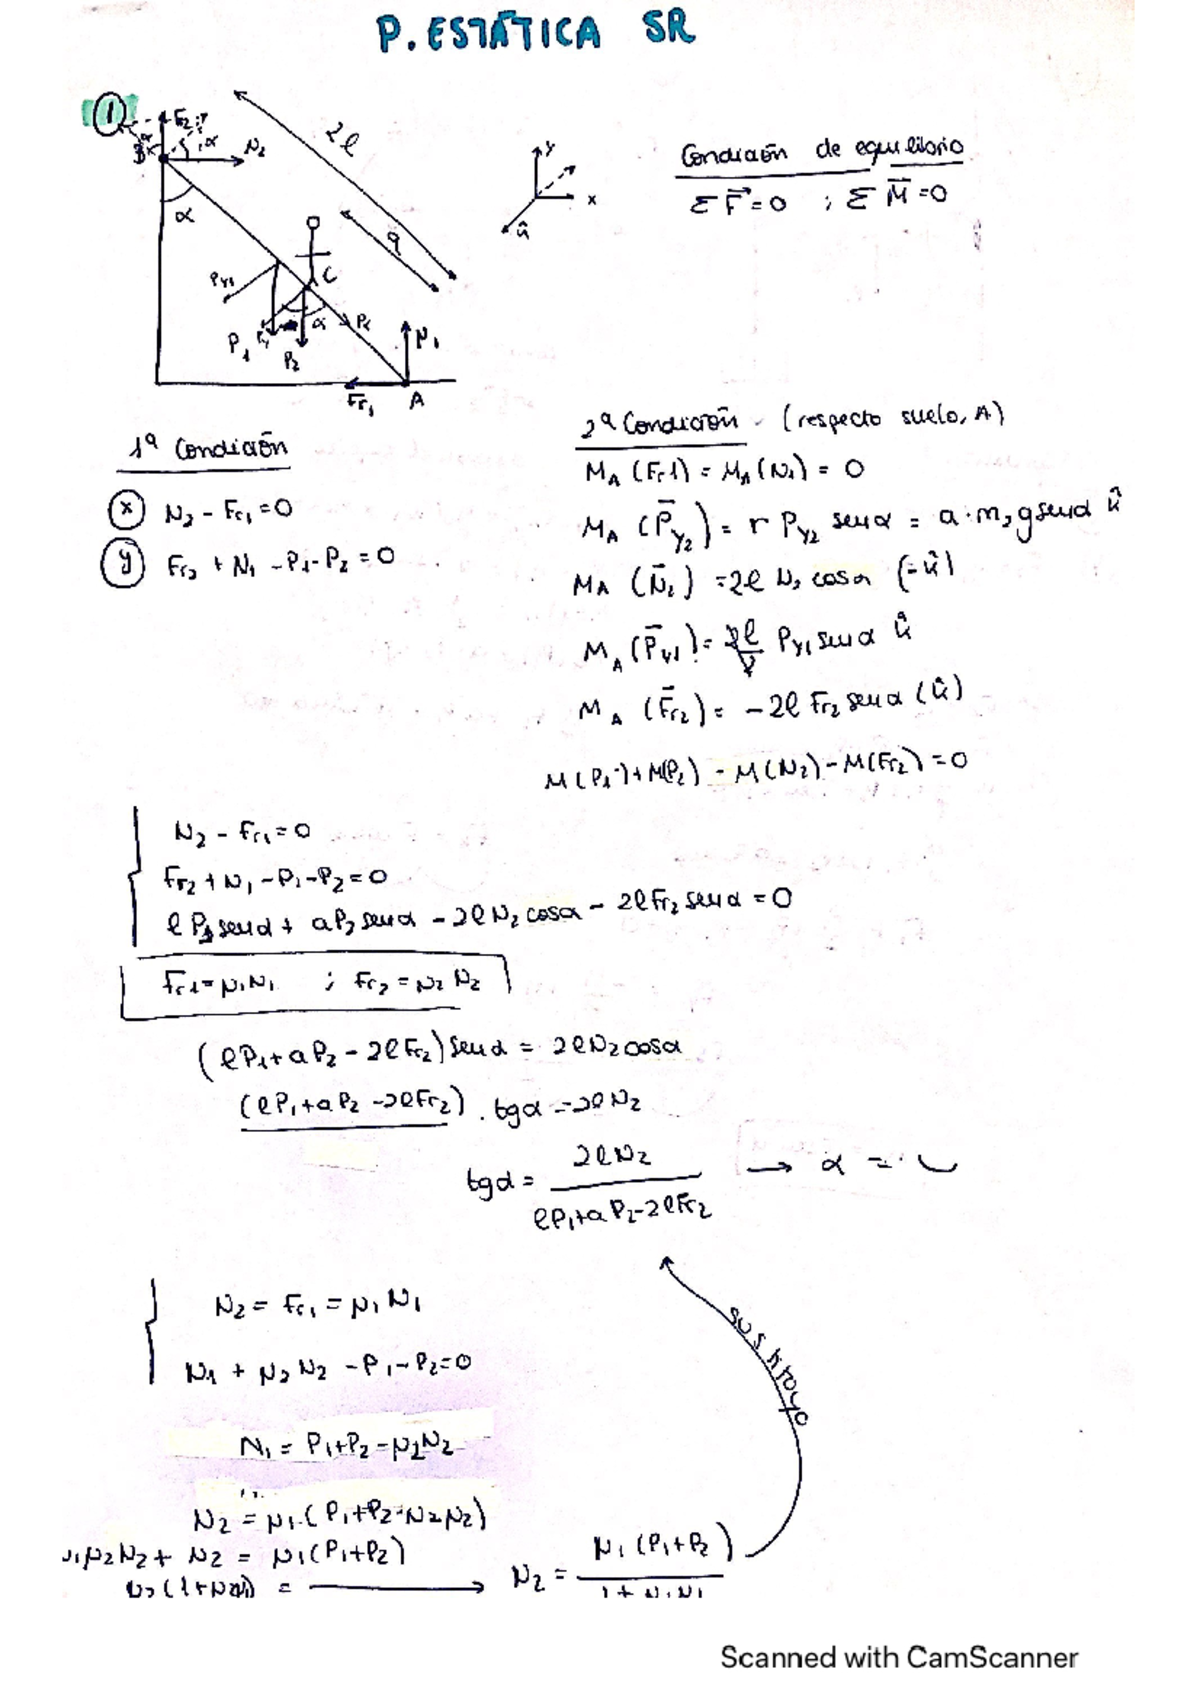 P. ESTÁTICA SR
1
Fr2
N2
α
B
α
2l
a
C
Py1
P1
P2
α
N1
Fr1
A
y
x
û
Condición de equilibrio
Σ F⃗ = 0 ; Σ M⃗ = 0
1ª Condición
x N2 - Fr1 = 0
y Fr2 + N1 - P1 - P2 = 0
2ª Condición - (respecto suelo, A)
MA (Fr1) = MA (N1) = 0
MA (Py2) = r Py2 senα = a · m2 g senα û
MA (N2) = 2l N2 cosα (-û)
MA (Py1) = 2l/2 Py1 senα û
MA (Fr2) = -2l Fr2 senα (û)
M(P1) + M(P2) - M(N2) - M(Fr2) = 0
N2 - Fr1 = 0
Fr2 + N1 - P1 - P2 = 0
l P1 senα + a P2 senα - 2l N2 cosα - 2l Fr2 senα = 0
Fr1 = μ1 N1 ; Fr2 = μ2 N2
(l P1 + a P2 - 2l Fr2) senα = 2l N2 cosα
(l P1 + a P2 - 2l Fr2) . tgα = 2l N2
tgα = 2l N2 / l P1 + a P2 - 2l Fr2 → α =
N2 = Fr1 = μ1 N1
N1 + μ2 N2 - P1 - P2 = 0
sustituyo
N1 = P1 + P2 - μ2 N2
N2 = μ1 (P1 + P2 - μ2 N2)
μ1 μ2 N2 + N2 = μ1 (P1 + P2)
N2 = μ1 (P1 + P2)
Scanned with CamScanner